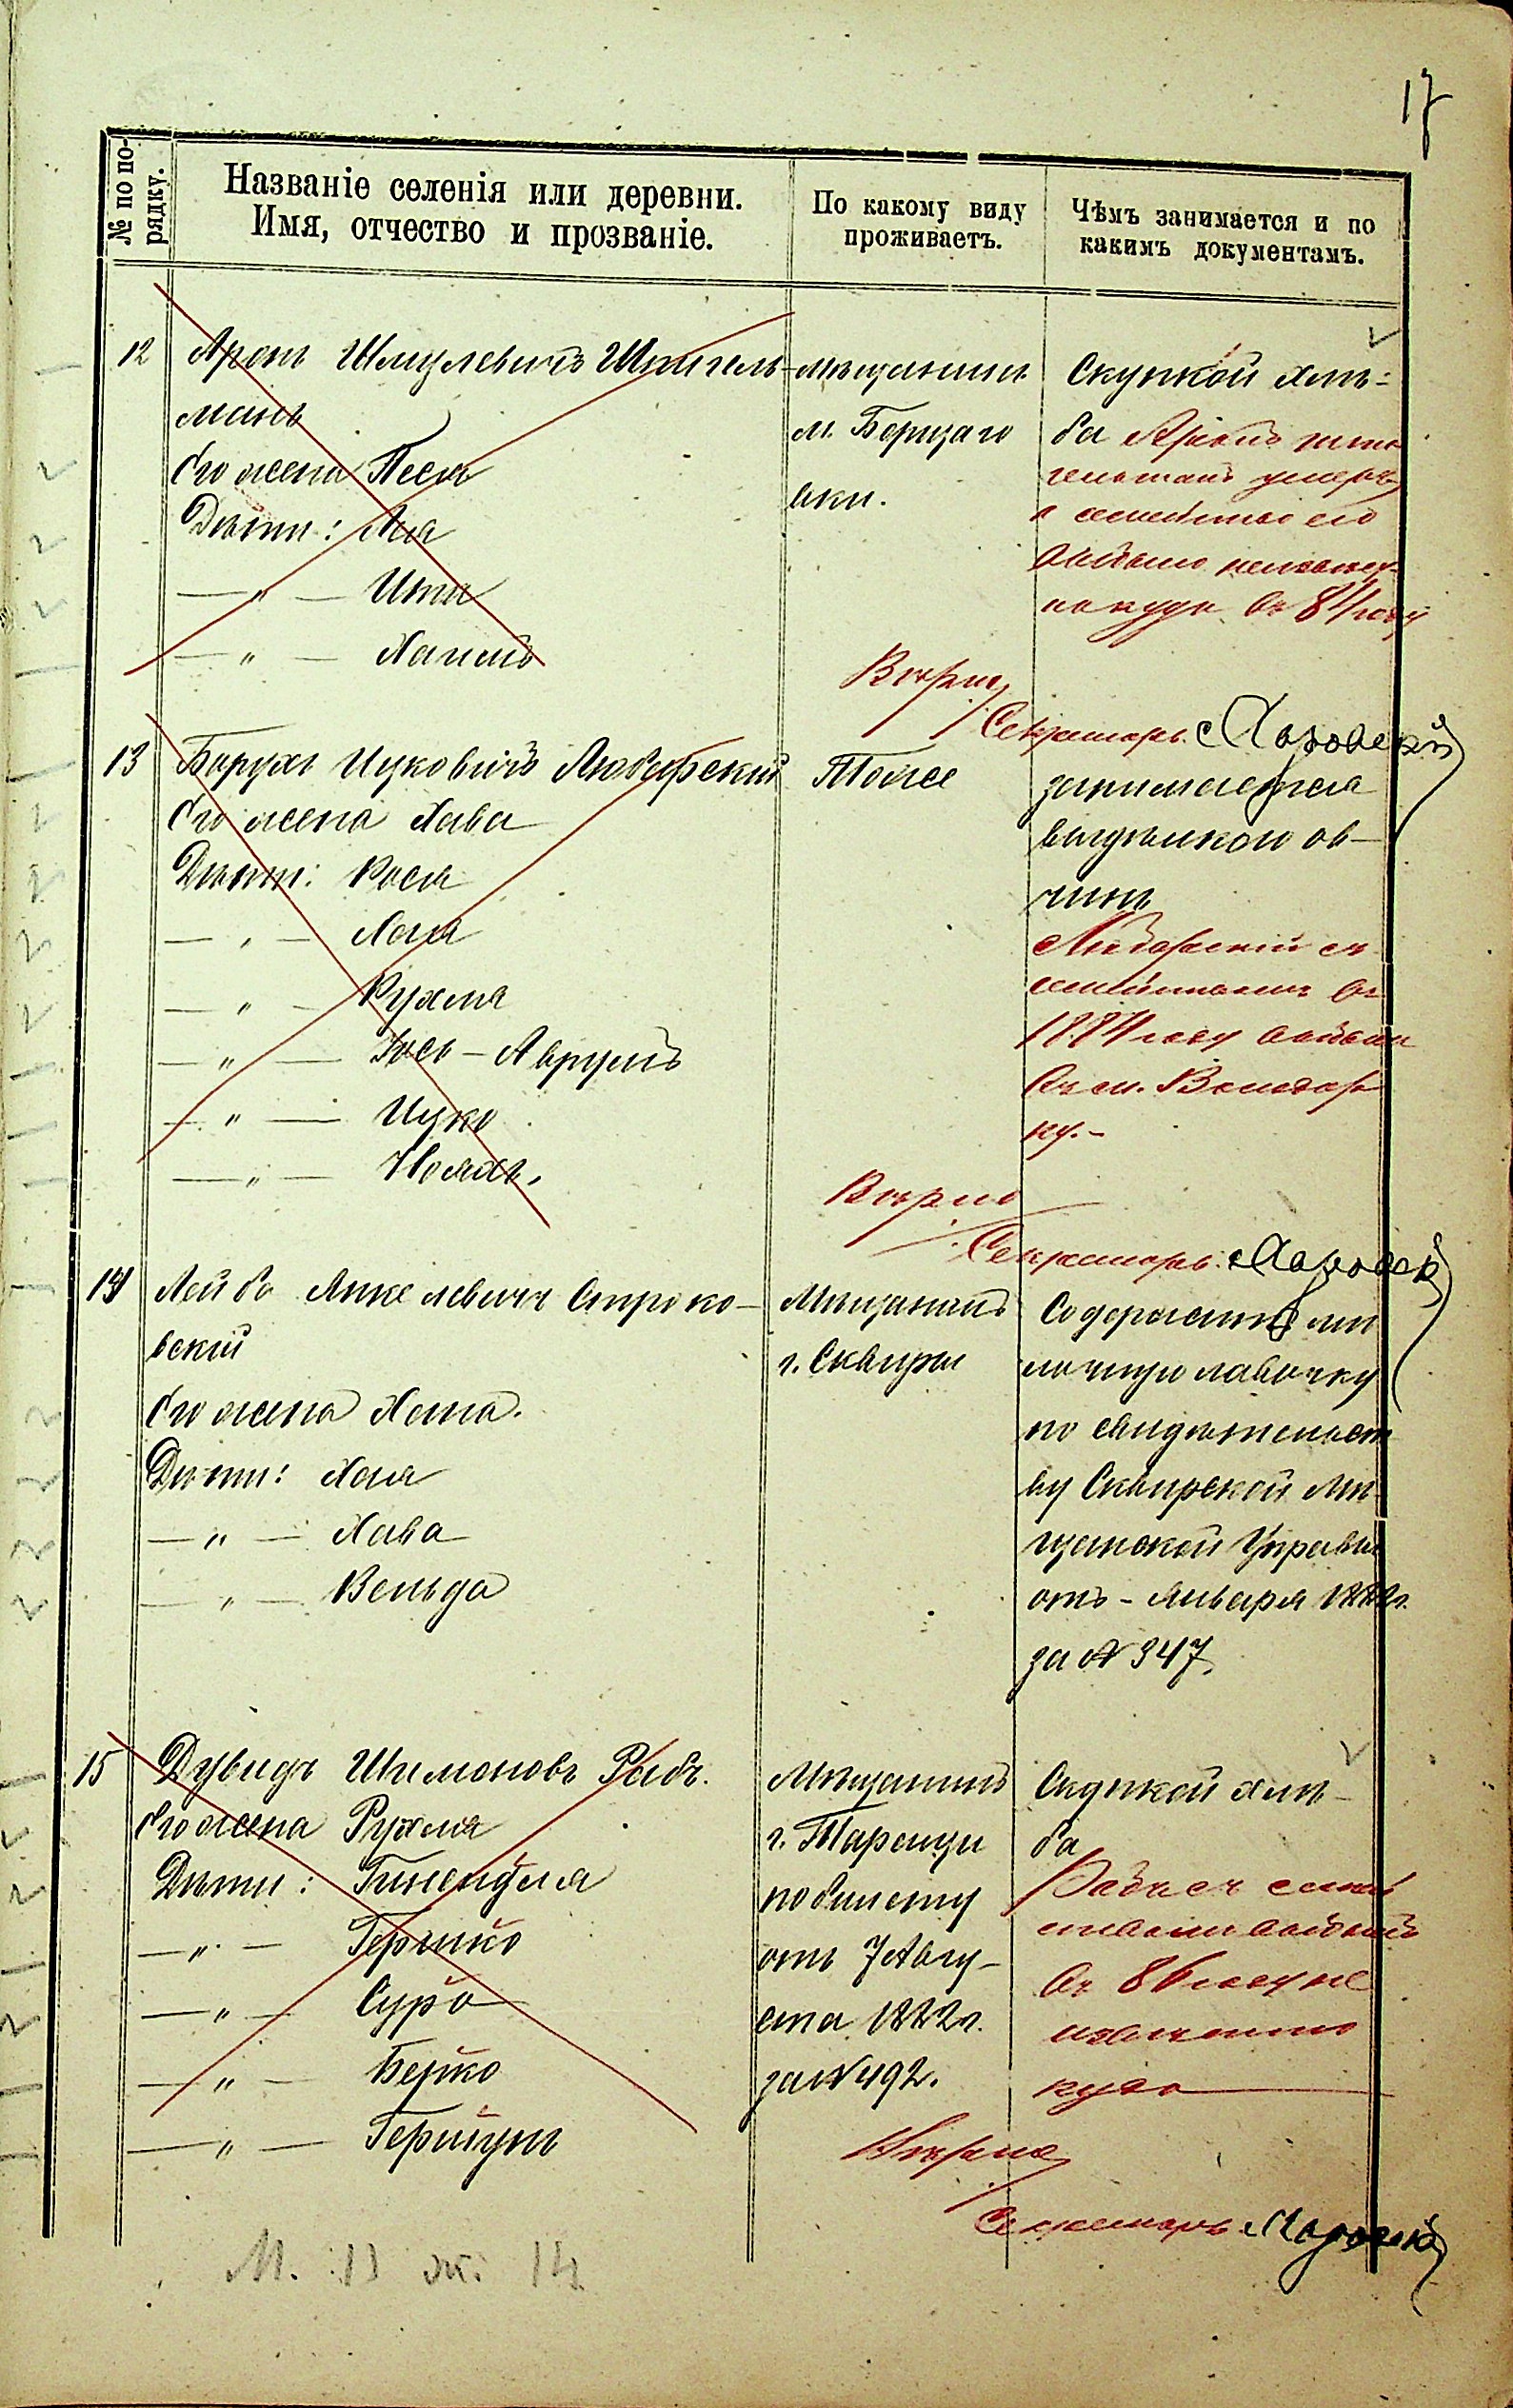 17
№ по по-
рядку.
Названіе селенія или деревни.
Имя, отчество и прозваніе.
По какому виду
проживаетъ.
Чѣмъ занимается и по
какимъ документамъ.
12 Аронъ Шмулевичъ Шпигель-
манъ
Его жена Песя
Дѣти: Лея
—„— Ита
—„— Хаимъ
мѣщанинъ
м. Борщаго
вки.
Скупкой хлѣ-
ба
Аронъ Шпи
гельманъ умеръ
а семейство его
выбыло неизвест-
но куда въ 84 году
Вѣрно,
Секретарь
13 Борухъ Ицковичъ Любарский
Его жена Хава
Дѣти: Рося
—„— Хая
—„— Рухля
—„— Іось-Аврумъ
—„— Ицко
—„— Нояхъ.
Тоже
занимается
выдѣлкой ов-
чинъ
Любарский съ
семействомъ въ
1884 году выбыл
въ м. Володар
ку.-
Вѣрно
Секретарь:
14 Лейба Янкелевичъ Строко-
вский
Его жена Хана.
Дѣти: Хая
—„— Хава
—„— Вольда
Мѣщанинъ
г. Сквиры
Содержитъ ме
лочную лавочку
по свидѣтельст
ву Сквирской Мѣ-
щанской Управы
отъ - Января 1882г.
за № 347,
15 Дувидъ Шимоновъ Рабъ.
Его жена Рухля
Дѣти:
—„— Гершко
—„— Сура
—„— Берко
—„— Гершунъ
Мѣщанинъ
г. Таращи
по билету
отъ 7 Авгу-
ста 1882г.
за № 492.
Скупкой хлѣ-
ба
Рабъ съ семей
ствомъ выбылъ
въ 86 году не
извѣстно
куда
Вѣрно
Секретарь
М. 13 ж. 14